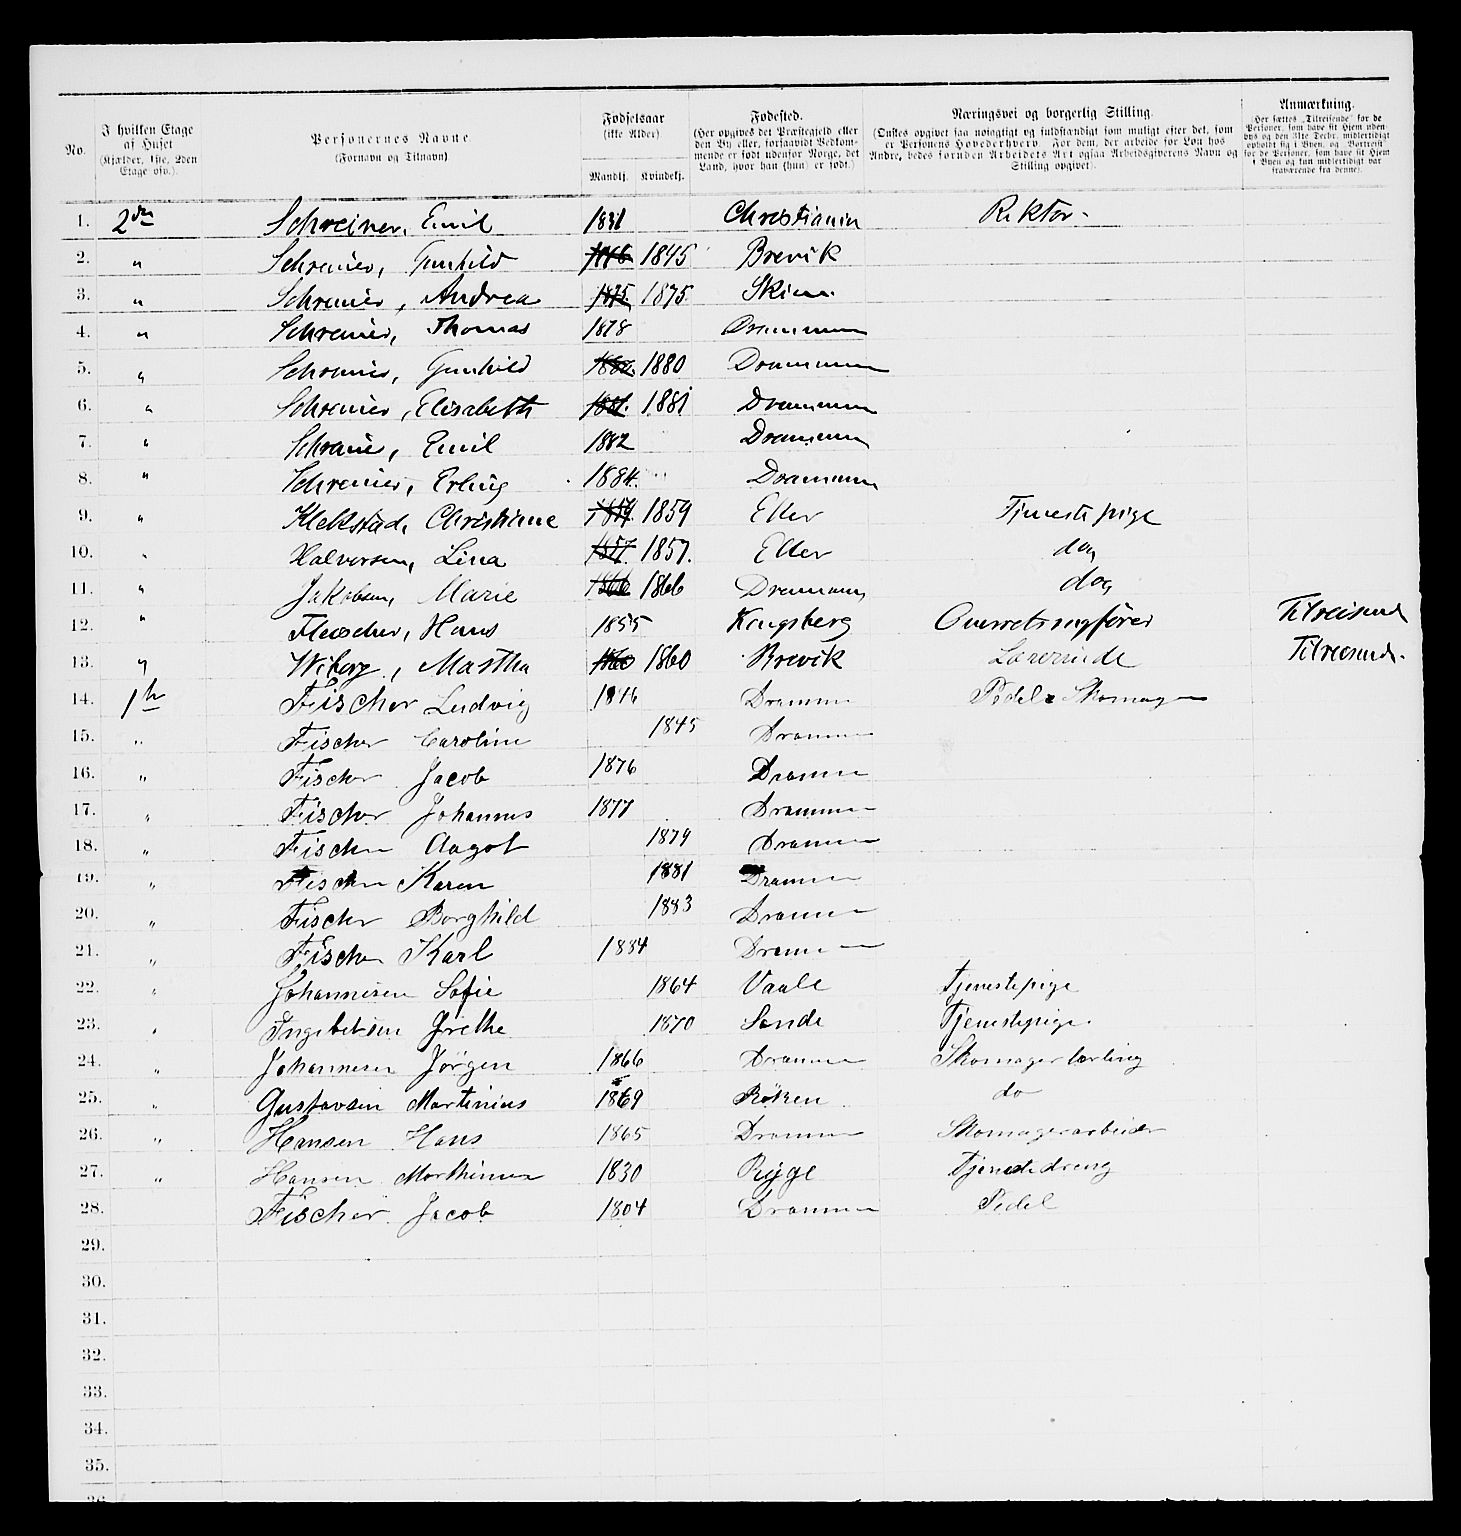 No. I hvilken Etage af Huset (Kjælder, 1ste, 2den Etage osv.). Personernes Navne (Fornavn og Tilnavn) Fødselsaar (ikke Alder) Mandkj. Kvindekj. Fødested. (Her opgives det Præstegjeld eller den By eller, forsaavidt Vedkommende er født udenfor Norge, det Land, hvor han (hun) er født.) Næringsvei og borgerlig Stilling. (Ønskes opgivet saa nøiagtigt og fuldstændigt som muligt efter det, som er Personens Hovederhverv. For dem, der arbeide for Løn hos Andre, bedes foruden Arbeidets Art ogsaa Arbeidsgiverens Navn og Stilling opgivet). Anmærkning. (Her sættes "Tilreisende" for de Personer, som have sit Hjem udenbys og den 31te Decbr. midlertidigt opholdt sig i Byen, og "Bortreist" for de Personer, som have sit Hjem i Byen og kun midlertidigt var fraværende fra denne).
1. 2den Schreiner, Emil 1831 Christiania Rektor.
2. " Schreiner, Gunhild 1845 Brevik
3. " Schreiner, Andrea 1875 1875. Skien.
4. " Schreiner, Thomas 1878 Drammen
5. " Schreiner, Gunhild 1880 Drammen
6. " Schreiner, Elisabeth 1881. 1881 Drammen
7. " Schreiner, Emil 1882 Drammen
8. " Schreiner, Erling 1884. Drammen
9. " Klekstad, Christiane 1859 1859 Eker Tjenestepige
10. " Halvorsen, Lina 1857. 1857. Eker do,
11. " Jakobsen, Marie 1866 1866 Drammen, do,
12. " Fleischer, Hans 1855 Kongsberg Overretssagfører Tilreisend
13. " Wiborg, Martha 1860 1860 Brevik Lærerinde Tilreisend.
14. 1ste Fischer Ludvig 1846 Drammen Pedel & Skomager
15. " Fischer Caroline 1845 Drammen
16. " Fischer Jacob 1876 Drammen
17. " Fischer Johannes 1877 Drammen
18. " Fischer Aagot 1879 Drammen
19. " Fischer Karen 1881 Drammen
20. " Fischer Borghild 1883 Drammen
21. " Fischer Karl 1884 Drammen
22. " Johannesen Sofie 1864 Vaale Tjenestepige
23. " Ingebretsen Grethe 1870 Sande Tjenestepige.
24. " Johannesen Jørgen 1866 Drammen Skomagerlærling
25. " Gustavsen Martinius 1869 Røken do
26. " Hansen Hans 1865 Drammen Skomagerarbeider
27. " Hansen Marthinus 1830 Rygge Tjenestedreng
28. Fischer Jacob 1804 Drammen Pedel
29.
30.
31.
32.
33.
34.
35.
36.